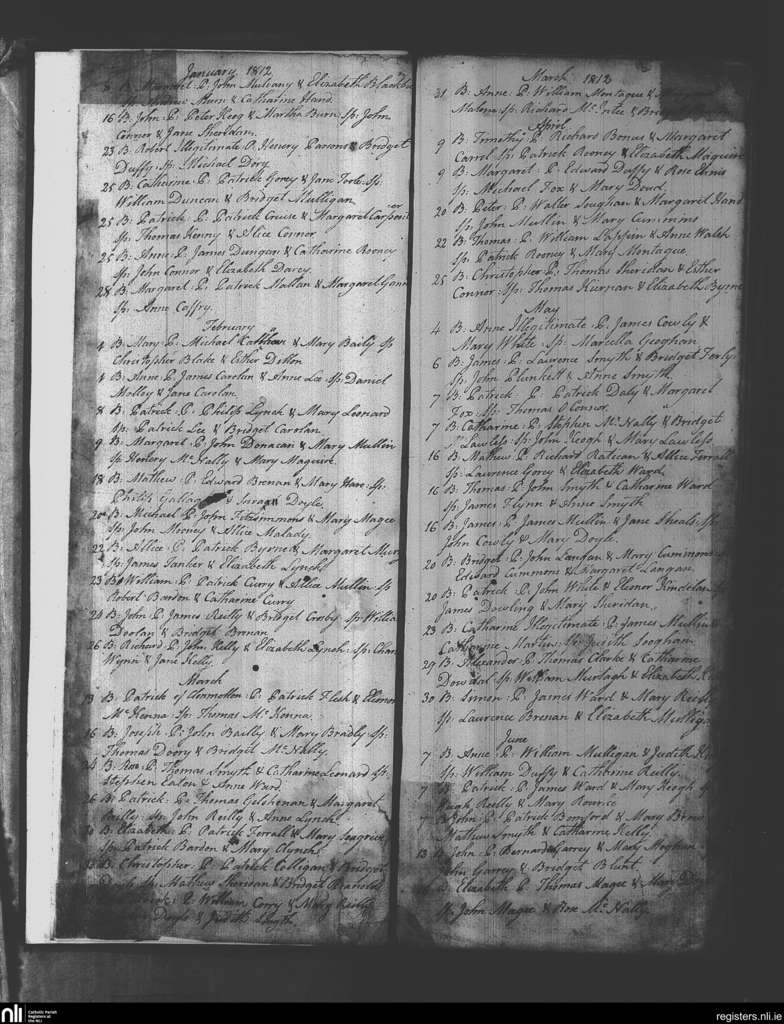 January 1812
8 B. Margaret P. John Mulvany & Elizabeth
Sp. Burn & Catharine Hand.
16 B. John P. Peter Keog & Martha Burn Sp. John
Connor & Jane Sheridan.
23 B. Robert Illegitimate P. Henery Parsons & Bridget
Duffy Sp. Michael Dory
25 B. Catharine P. Patrick Gorey & Jane Toole Sp.
William Duncan & Bridget Mulligan
25 B. Patrick P. Patrick Creuse & Margaret
Sp. Thomas Kenny & Alice Connor
25 B. Anne P. James Dungan & Catharine Rooney
Sp. John Connor & Elizabeth Darcy.
28 B. Margaret P. Patrick Mattan & Margaret
Sp. Anne Caffry.
February
4 B. Mary P. Michael & Mary Baily Sp
Christopher Blake & Esther Dillon
4 B. Anne P. James Carolan & Anne Lee Sp. Daniel
Molley & Jane Carolan.
8 B. Patrick P. Philip Lynch & Mary Leonard
Sp. Patrick Lee & Bridget Carolan.
9 B. Margaret P. John Donacan & Mary Mullin
Sp. Henery Mc Nally & Mary Maguire.
18 B. Mathew P. Edward Brenan & Mary Hare Sp.
Philip & Doyle
20 B. Michael P. John Fitzsimmons & Mary Magee
Sp. John & Alice Malady.
22 B. Alice P. Patrick Byrne & Margaret
Sp. James & Elizabeth Lynch
23 B. William P. Patrick Curry & Allice Mullen Sp
Robert Bardon & Catharine Curry
24 B. John P. James Reilly & Bridget Crosby Sp.
Doolan & Bridget Brenan
26 B. Richard P. John Kelly & Elizabeth Lynch Sp.
Wynn & Jane Kelly.
March
13 B. Patrick of Clonmellon P. Patrick Flesk &
Mc Kenna Sp. Thomas Mc Kenna.
16 B. Joseph P. John Bailly & Mary Bradly Sp.
Thomas Doory & Bridget Mc Nally
24 B. Rose P. Thomas Smyth & Catharine Leonard Sp.
Stephen Eaton & Anne Ward.
26 B. Patrick P. Thomas & Margaret
Reilly Sp. John Reilly & Anne Lynch
B. Elizabeth P. Patrick Ferrall & Mary Seagrave
Sp. Patrick Bardon & Mary Clynch
B. Christopher P. Patrick Colligan & Bridget
Doyle Sp. Mathew Sheridan & Bridget
P. William Corry & Mary Reilly
Doyle & Judith Smyth.
March 1812
31 B. Anne P. William Montague &
Malone Sp. Richard Mc Entee &
April
9 B. Timothy P. Richard Bonus & Margaret
Carrol Sp. Patrick Rooney & Elizabeth Maguire
9 B. Margaret P. Edward Duffy & Rose Ennis
Sp. Michael Fox & Mary Dowd.
20 B. Peter P. Walter Loughan & Margaret Hand
Sp. John Mullin & Mary Cummins
22 B. Thomas P. William Lappin & Anne Walsh
Sp. Patrick Rooney & Mary Montague
25 B. Christopher P. Thomas Sheridan & Esther
Connor Sp. Thomas Kiernan & Elizabeth Byrne
May
4 B. Anne Illegitimate P. James Cowly &
Mary White Sp. Marcella Geoghan
6 B. James P. Lawrence Smyth & Bridget Farly
Sp. John Plunkett & Anne Smyth
7 B. Patrick P. Patrick Daly & Margaret
Fox Sp. Thomas O Connor
7 B. Catharine P. Stephen Mc Nally & Bridget
Lawless Sp. John Keogh & Mary Lawless
16 B. Mathew P. Richard Ratican & Allice Ferrall
Sp. Laurence Gorey & Elizabeth Ward
16 B. Thomas P. John Smyth & Catharine Ward
Sp. James Flynn & Anne Smyth
16 B. James P. James Mullin & Jane Sheals Sp
John Cowly & Mary Doyle.
20 B. Bridget P. John Langan & Mary Cummins
Edward Cummins & Margaret Langan.
20 B. Patrick P. John White & Elenor Kindelan Sp
James Dowling & Mary Sheridan.
23 B. Catharine Illegitimate P. James Mullin &
Catharine Martin Sp. Judith Geoghan
29 B. Alexander P. Thomas Clarke & Catharine
Dowdal Sp. William Murtagh & Elizabeth
30 B. Simon P. James Ward & Mary Reilly
Sp. Laurence Brenan & Elizabeth Mulligan
June
7 B. Anne P. William Mulligan & Judith
Sp. William Duffy & Catharine Reilly.
7 B. Patrick P. James Ward & Mary Keogh Sp
Hugh Reilly & Mary Rourke
7 B. John P. Patrick Bomford & Mary
Mathew Smyth & Catharine Kelly.
13 B. John P. Bernard Garrey & Mary Meghan
John Garrey & Bridget Blunt
B. Elizabeth P. Thomas Magee & Mary
Sp. John Magee & Rose Mc Nally.
nli
Catholic Parish
Registers at
the NLI
registers.nli.ie